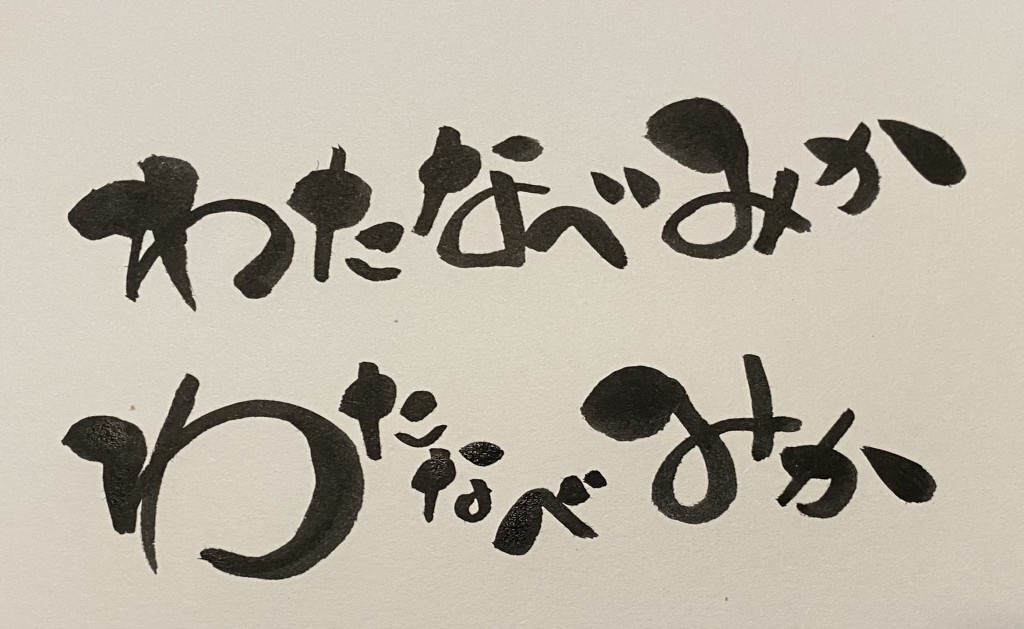 わたなべみか
わたなべみか